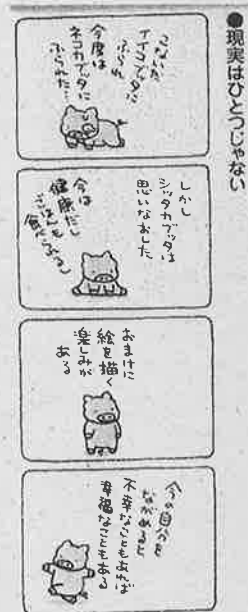 ●現実はひとつじゃない
こないだ
イイコブッタに
ふられ
今度は
ネコカブッタに
ふられた…
しかし
シッタカブッタは
思いなおした
今は
健康だし
ごはんも
食べられるし
おまけに
絵を描く
楽しみが
ある
今の自分を
ながめると
不幸なこともあれば
幸福なこともある